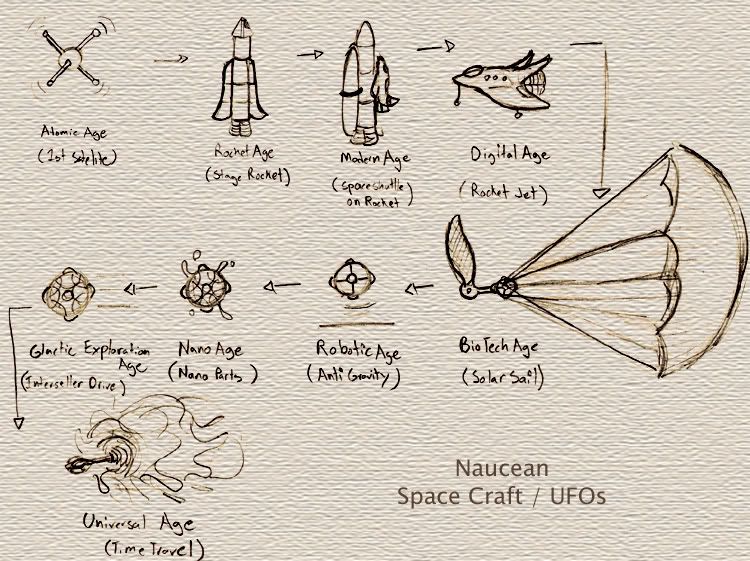 Atomic Age
(1st Satelite)
Rocket Age
(Stage Rocket)
Modern Age
(Space shuttle
on Rocket
)
Digital Age
(Rocket Jet)
BioTech Age
(Solar Sail)
Robotic Age
(Anti Gravity)
Nano Age
(Nano Parts)
Glactic Exploration
Age
(Interseller Drive)
Universal Age
(Time Travel)
Naucean
Space Craft / UFOs